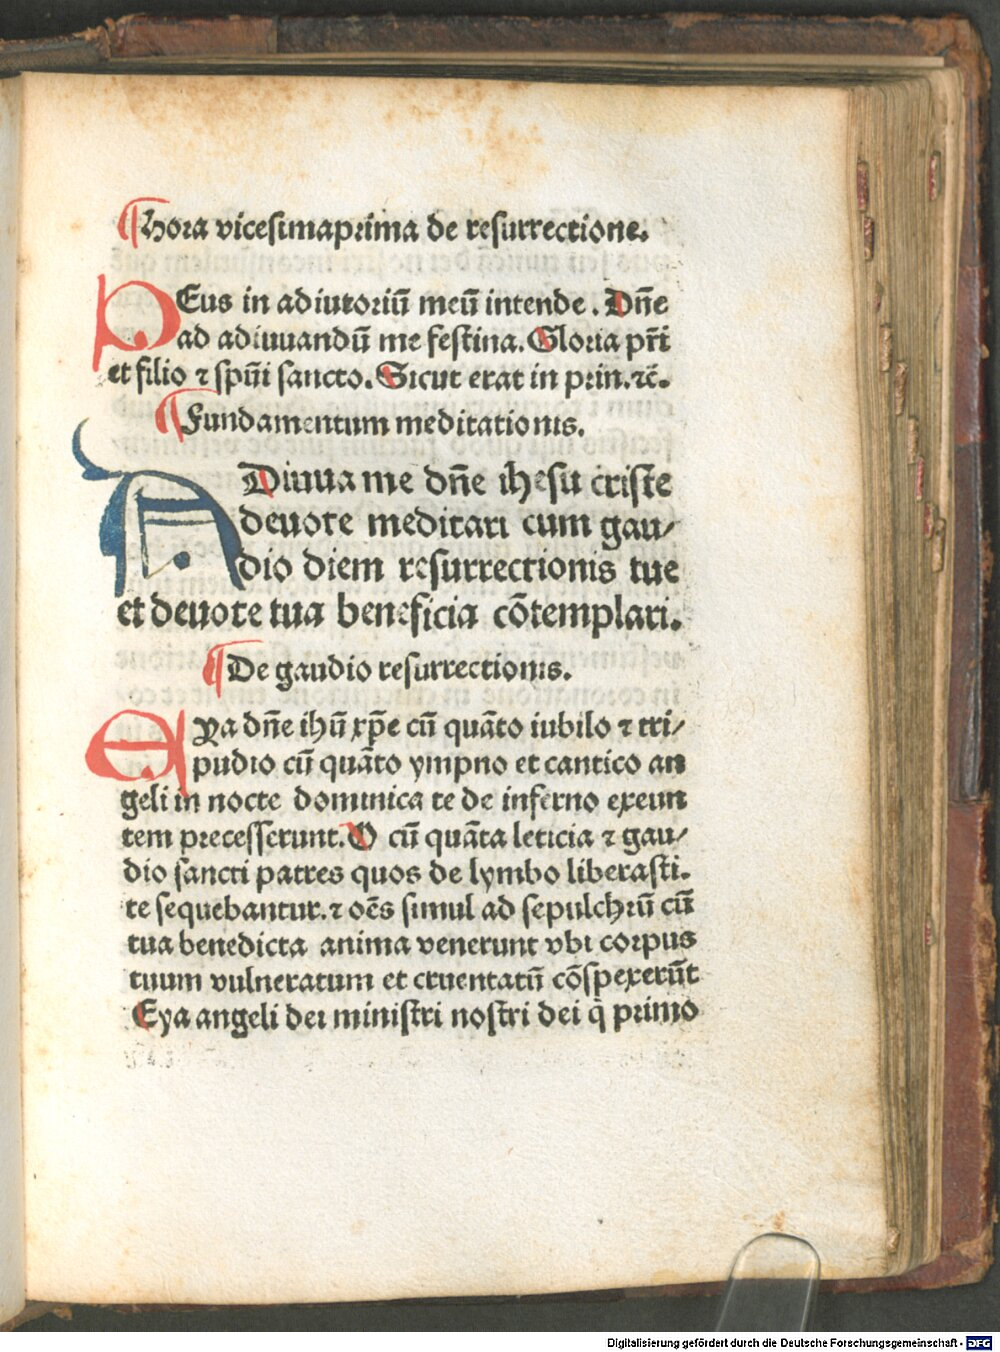 ¶ Hora vicesimaprima de resurrectione.
DEus in adiutoriū meū intende. Dn̄e
ad adiuuandū me festina. Gloria pr̄i
et filio ⁊ spūi sancto. Sicut erat in prin. ⁊c̄.
¶ Fundamentum meditationis.
ADiuua me dn̄e ihesu criste
deuote meditari cum gau⸗
dio diem resurrectionis tue
et deuote tua beneficia cōtemplari.
¶ De gaudio resurrectionis.
EYa dn̄e ihū xp̄e cū quāto iubilo ⁊ tri⸗
pudio cū quāto ympno et cantico an
geli in nocte dominica te de inferno exeun
tem precesserunt. O cū quāta leticia ⁊ gau⸗
dio sancti patres quos de lymbo liberasti.
te sequebantur. ⁊ oēs simul ad sepulchrū cū
tua benedicta anima venerunt vbi corpus
tuum vulneratum et cruentatū cōspexerūt
Eya angeli dei ministri nostri dei q̄ primo
Digitalisierung gefördert durch die Deutsche Forschungsgemeinschaft - DFG